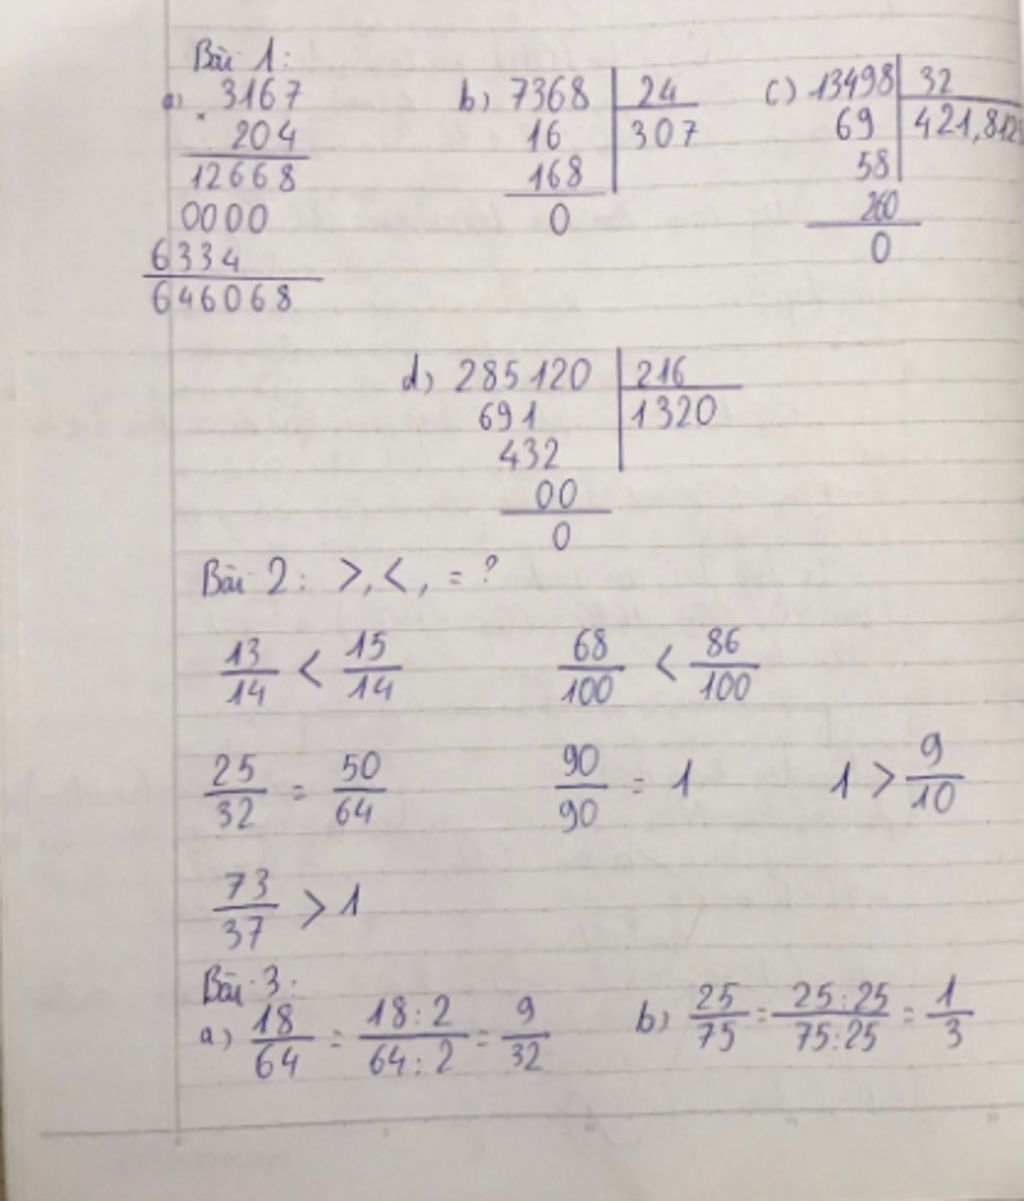 Bài 1:
a) 3167
×
204
12668
0000
6334
646068
b) 7368 24
16 307
168
0
c) 13498 32
69 421,812
58
260
0
d) 285120 216
691 1320
432
00
0
Bài 2: >, <, = ?
13/14 < 15/14 68/100 < 86/100
25/32 = 50/64 90/90 = 1 1 > 9/10
73/37 > 1
Bài 3:
a) 18/64 = 18:2/64:2 = 9/32 b) 25/75 = 25:25/75:25 = 1/3